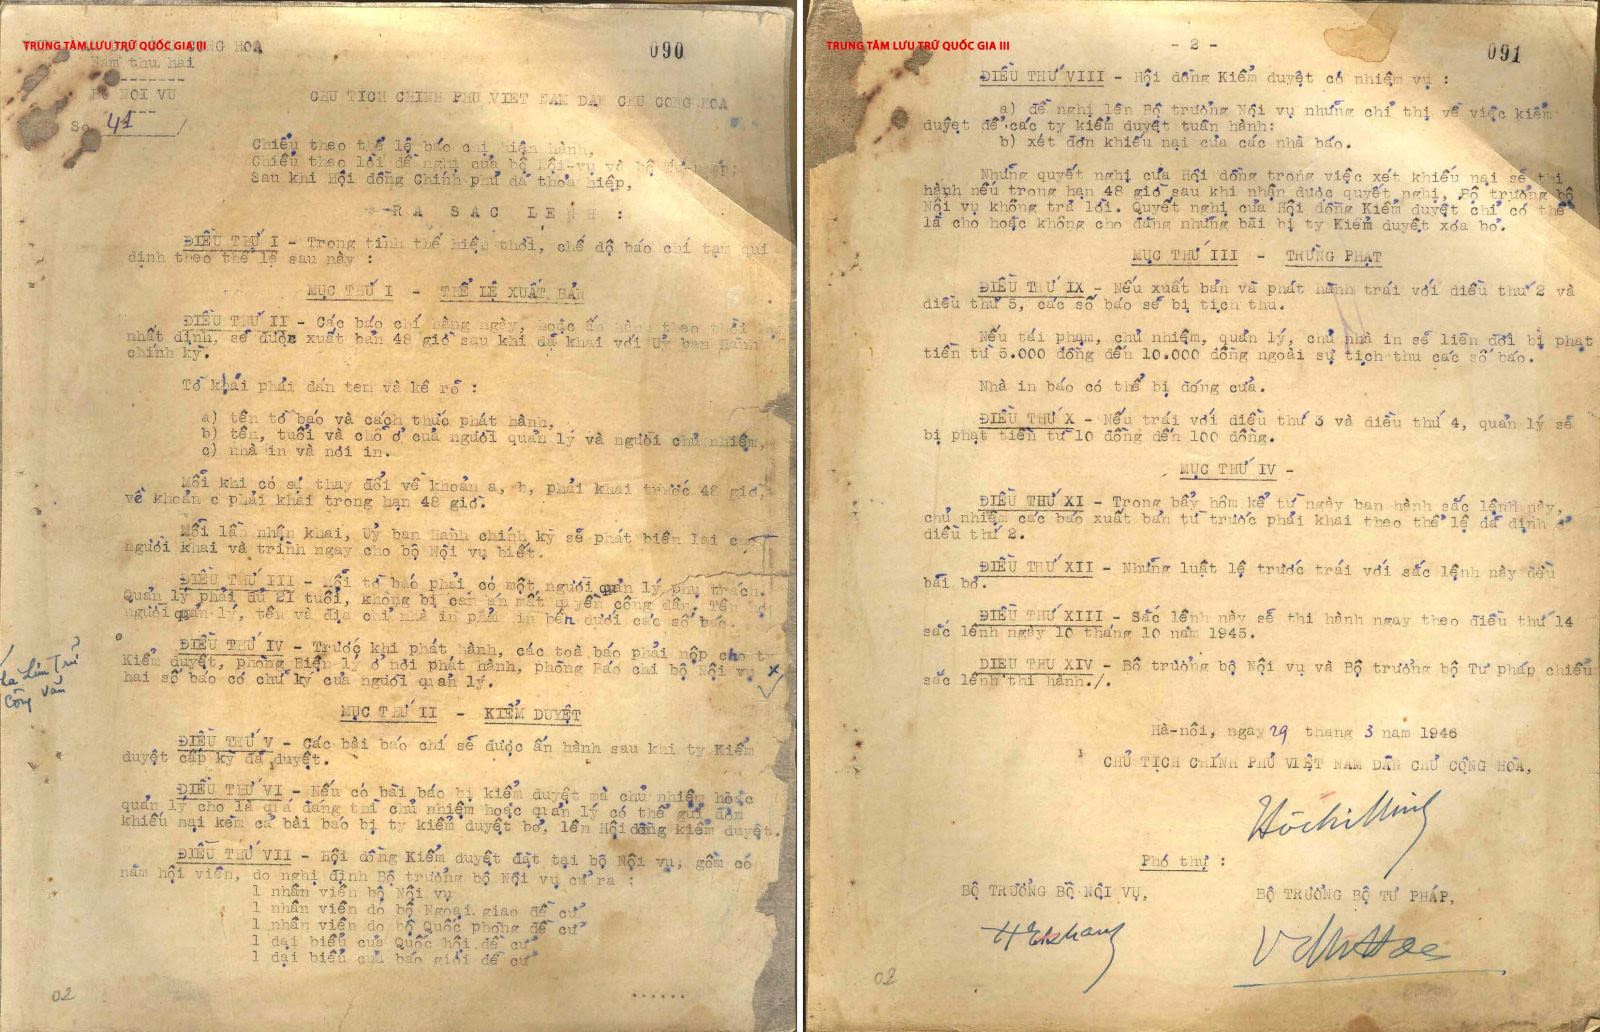 TRUNG TÂM LƯU TRỮ QUỐC GIA III
CỘNG HOA
090
Năm thứ hai
BỘ NỘI VỤ
CHỦ TỊCH CHÍNH PHỦ VIỆT NAM DÂN CHỦ CỘNG HÒA
Số 41 /
Chiếu theo thể lệ báo chí hiện hành,
Chiếu theo lời đề nghị của bộ Nội-vụ và bộ Tư-pháp;
Sau khi Hội đồng Chính phủ đã thoả hiệp,
RA SẮC LỆNH :
ĐIỀU THỨ I - Trong tình thế hiện thời, chế độ báo chí tạm qui
định theo thể lệ sau này :
MỤC THỨ I - THỂ LỆ XUẤT BẢN
ĐIỀU THỨ II - Các báo chí hàng ngày, hoặc ấn hành theo thời
nhất định, sẽ được xuất bản 48 giờ sau khi đã khai với Uỷ ban Hành
chính kỳ.
Tờ khai phải dán tem và kê rõ :
a) tên tờ báo và cách thức phát hành,
b) tên, tuổi và chỗ ở của người quản lý và người chủ nhiệm,
c) nhà in và nơi in.
Mỗi khi có sự thay đổi về khoản a, b, phải khai trước 48 giờ,
về khoản c phải khai trong hạn 48 giờ.
Mỗi lần nhận khai, Uỷ ban Hành chính kỳ sẽ phát biên lai cho
người khai và trình ngay cho bộ Nội vụ biết.
ĐIỀU THỨ III - Mỗi tờ báo phải có một người quản lý phụ trách.
Quản lý phải đủ 21 tuổi, không bị can án mất quyền công dân. Tên
người quản lý, tên và địa chỉ nhà in phải in bên dưới các số báo.
ĐIỀU THỨ IV - Trước khi phát hành, các toà báo phải nộp cho ty
Kiểm duyệt, phòng Biện lý ở nơi phát hành, phòng Báo chí bộ Nội vụ x
hai số báo có chữ ký của người quản lý.
Công văn
MỤC THỨ II - KIỂM DUYỆT
ĐIỀU THỨ V - Các bài báo chí sẽ được ấn hành sau khi ty Kiểm
duyệt cấp kỳ đã duyệt.
ĐIỀU THỨ VI - Nếu có bài báo bị kiểm duyệt mà chủ nhiệm hoặc
quản lý cho là quá đáng thì chủ nhiệm hoặc quản lý có thể gửi đơn
khiếu nại kèm cả bài báo bị ty kiểm duyệt bỏ, lên Hội đồng kiểm duyệt.
ĐIỀU THỨ VII - Hội đồng Kiểm duyệt đặt tại bộ Nội vụ, gồm có
năm hội viên, do nghị định Bộ trưởng bộ Nội vụ cử ra :
1 nhân viên bộ Nội vụ
1 nhân viên do bộ Ngoại giao đề cử
1 nhân viên do bộ Quốc phòng đề cử
1 đại biểu của Quốc hội đề cử
1 đại biểu của báo giới đề cử
02
......
TRUNG TÂM LƯU TRỮ QUỐC GIA III
- 2 -
091
ĐIỀU THỨ VIII - Hội đồng Kiểm duyệt có nhiệm vụ :
a) đề nghị lên Bộ trưởng Nội vụ những chỉ thị về việc kiểm
duyệt để các ty kiểm duyệt tuân hành;
b) xét đơn khiếu nại của các nhà báo.
Những quyết nghị của Hội đồng trong việc xét khiếu nại sẽ thi
hành nếu trong hạn 48 giờ sau khi nhận được quyết nghị, Bộ trưởng bộ
Nội vụ không trả lời. Quyết nghị của Hội đồng Kiểm duyệt chỉ có thể
là cho hoặc không cho đăng những bài bị ty Kiểm duyệt xóa bỏ.
MỤC THỨ III - TRỪNG PHẠT
ĐIỀU THỨ IX - Nếu xuất bản và phát hành trái với điều thứ 2 và
điều thứ 5, các số báo sẽ bị tịch thu.
Nếu tái phạm, chủ nhiệm, quản lý, chủ nhà in sẽ liên đới bị phạt
tiền từ 5.000 đồng đến 10.000 đồng ngoài sự tịch thu các số báo.
Nhà in báo có thể bị đóng cửa.
ĐIỀU THỨ X - Nếu trái với điều thứ 3 và điều thứ 4, quản lý sẽ
bị phạt tiền từ 10 đồng đến 100 đồng.
MỤC THỨ IV -
ĐIỀU THỨ XI - Trong bẩy hôm kể từ ngày ban hành sắc lệnh này,
chủ nhiệm các báo xuất bản từ trước phải khai theo thể lệ đã định ở
điều thứ 2.
ĐIỀU THỨ XII - Những luật lệ trước trái với sắc lệnh này đều
bãi bỏ.
ĐIỀU THỨ XIII - Sắc lệnh này sẽ thi hành ngay theo điều thứ 14
sắc lệnh ngày 10 tháng 10 năm 1945.
ĐIỀU THỨ XIV - Bộ trưởng bộ Nội vụ và Bộ trưởng bộ Tư pháp chiểu
sắc lệnh thi hành./.
Hà-nội, ngày 29 tháng 3 năm 1946
CHỦ TỊCH CHÍNH PHỦ VIỆT NAM DÂN CHỦ CỘNG HÒA,
Hồ Chí Minh
Phó thự :
BỘ TRƯỞNG BỘ NỘI VỤ,
BỘ TRƯỞNG BỘ TƯ PHÁP,